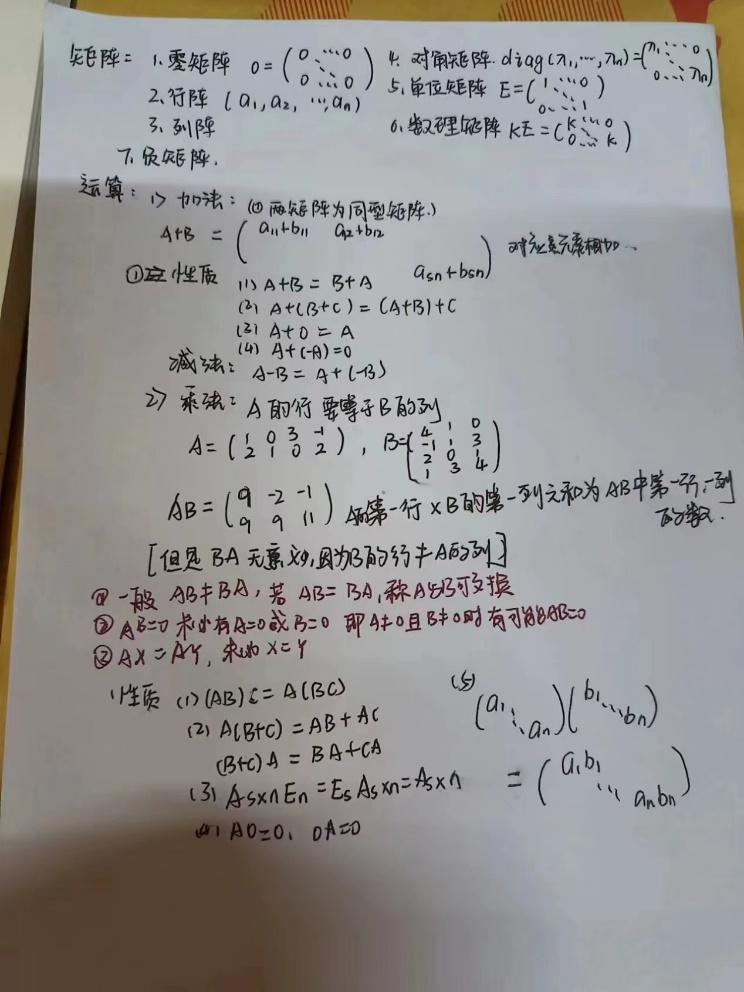 矩阵: 1.零矩阵 0=(0 ⋯ 0 ⋱ 0 ⋯ 0) 4. 对角矩阵. diag(λ1,⋯,λn)=(λ1 ⋯ 0 ⋱ 0 ⋯ λn)
2.行阵 (a1,a2, ⋯,an) 5.单位矩阵 E=(1 ⋯ 0 ⋱ 0 ⋯ 1)
3.列阵 6.数理矩阵 KE=(K ⋯ 0 ⋱ 0 ⋯ K)
7.负矩阵.
运算: 1> 加法: (① 两矩阵为同型矩阵.)
A+B = (a11+b11 a12+b12 asn+bsn) 对应元素相加
① 性质 (1) A+B = B+A
(2) A+(B+C) = (A+B)+C
(3) A+0 = A
(4) A+(-A)=0
减法: A-B = A+(-B)
2> 乘法: A的行要等于B的列
A=(1 0 3 -1
2 1 0 2), B=(4 1 0
-1 1 3
2 0 1
1 3 4)
AB=(9 -2 -1
9 9 11) A的第一行×B的第一列元和为AB中第一行,一列
的数.
[但是BA无意义,因为B的行≠A的列]
① 一般 AB≠BA, 若 AB=BA,称A与B可交换
② AB=0 未必有A=0或B=0 即A≠0且B≠0时有可能AB=0
③ AX=AY, 未必X=Y
性质 (1) (AB)C=A(BC)
(2) A(B+C)=AB+AC
(B+C)A=BA+CA
(3) As×nEn=EsAs×n=As×n
(4) A0=0, 0A=0
(5) (a1 ⋱ an)(b1 ⋱ bn)
=(a1b1 ⋱ anbn)